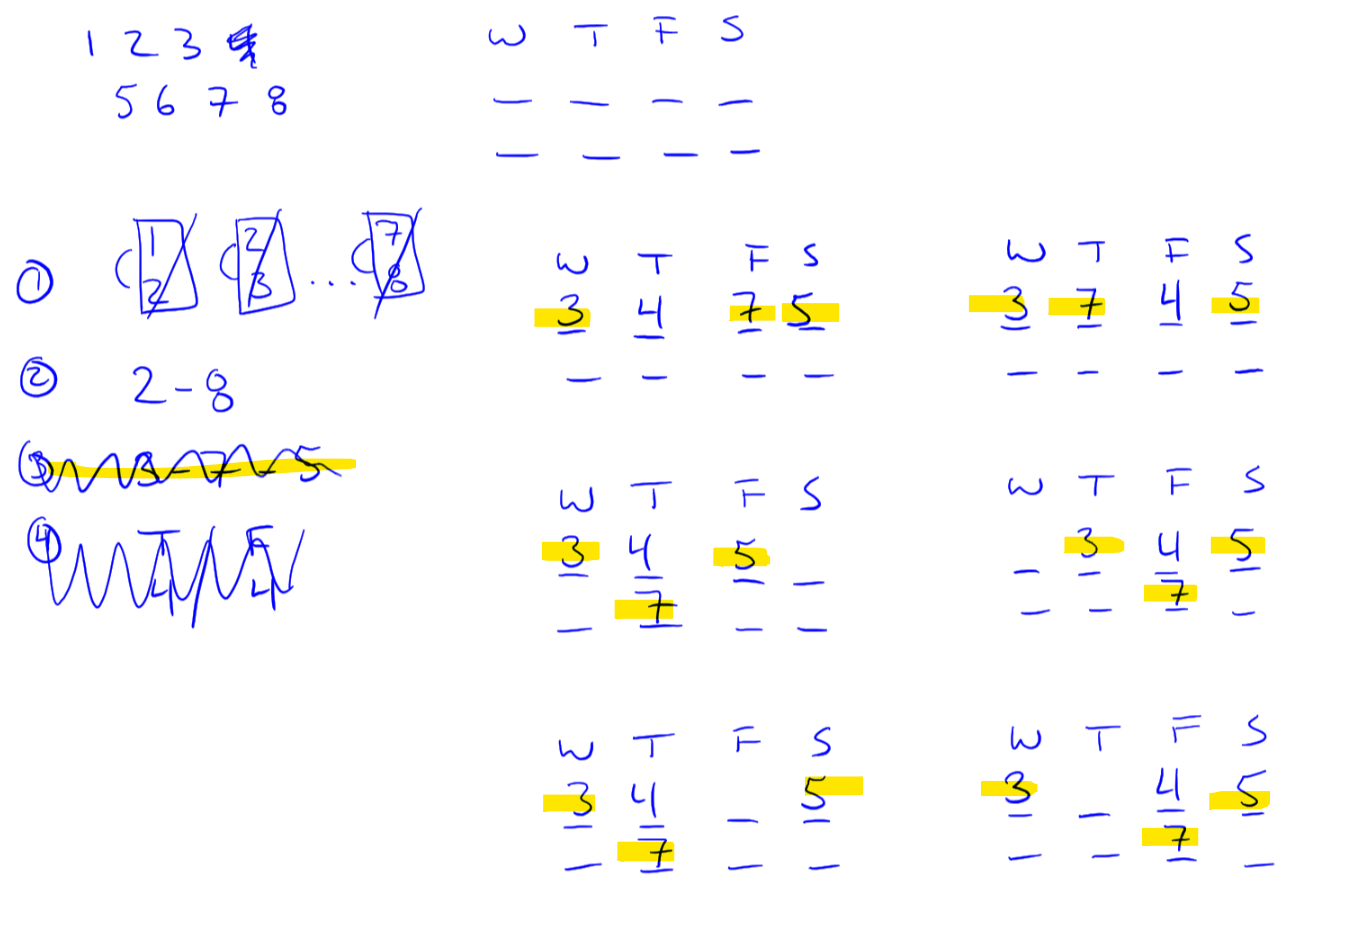 1 2 3 4
5 6 7 8
W T F S
_ _ _ _
_ _ _ _
① 1 2 2 3 ... 7 8
② 2 - 8
③ 3 - 7 - 5
④ T 4 / F 4
W T F S
3 4 7 5
_ _ _ _
W T F S
3 7 4 5
_ _ _ _
W T F S
3 4 5 _
_ 7 _ _
W T F S
_ 3 4 5
_ _ 7 _
W T F S
3 4 _ 5
_ 7 _ _
W T F S
3 _ 4 5
_ _ 7 _